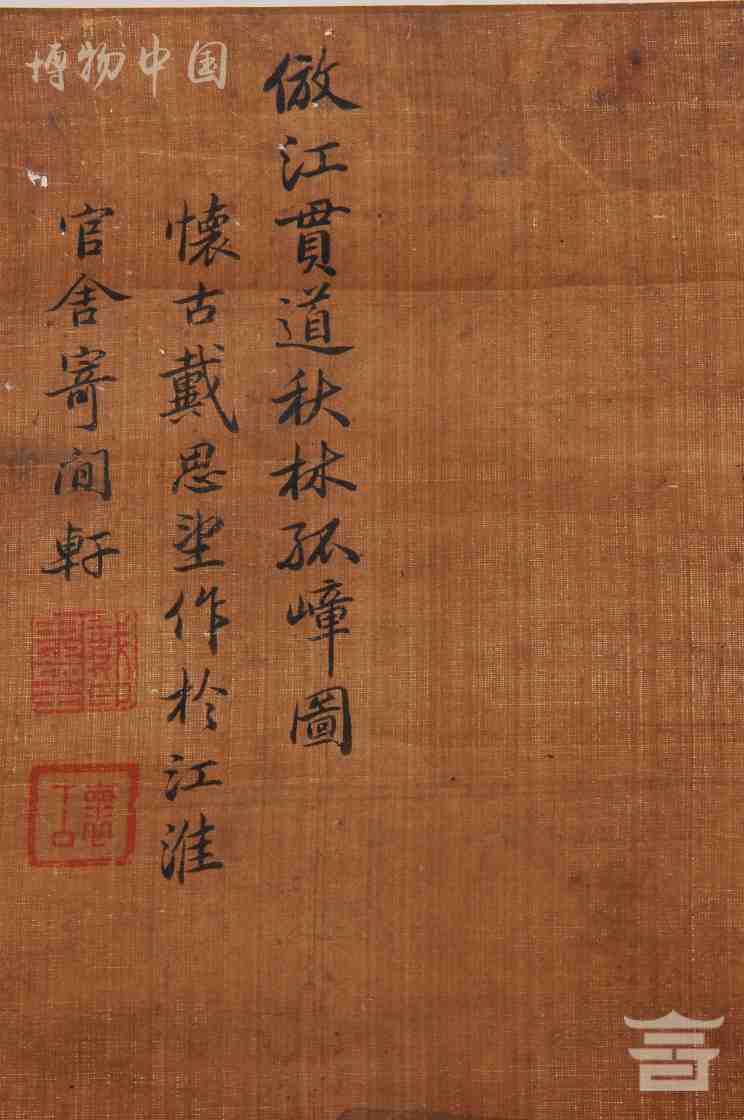 博物中国
倣江貫道秋林孤嶂圖
懷古戴思望作於江淮
官舍寄閒軒